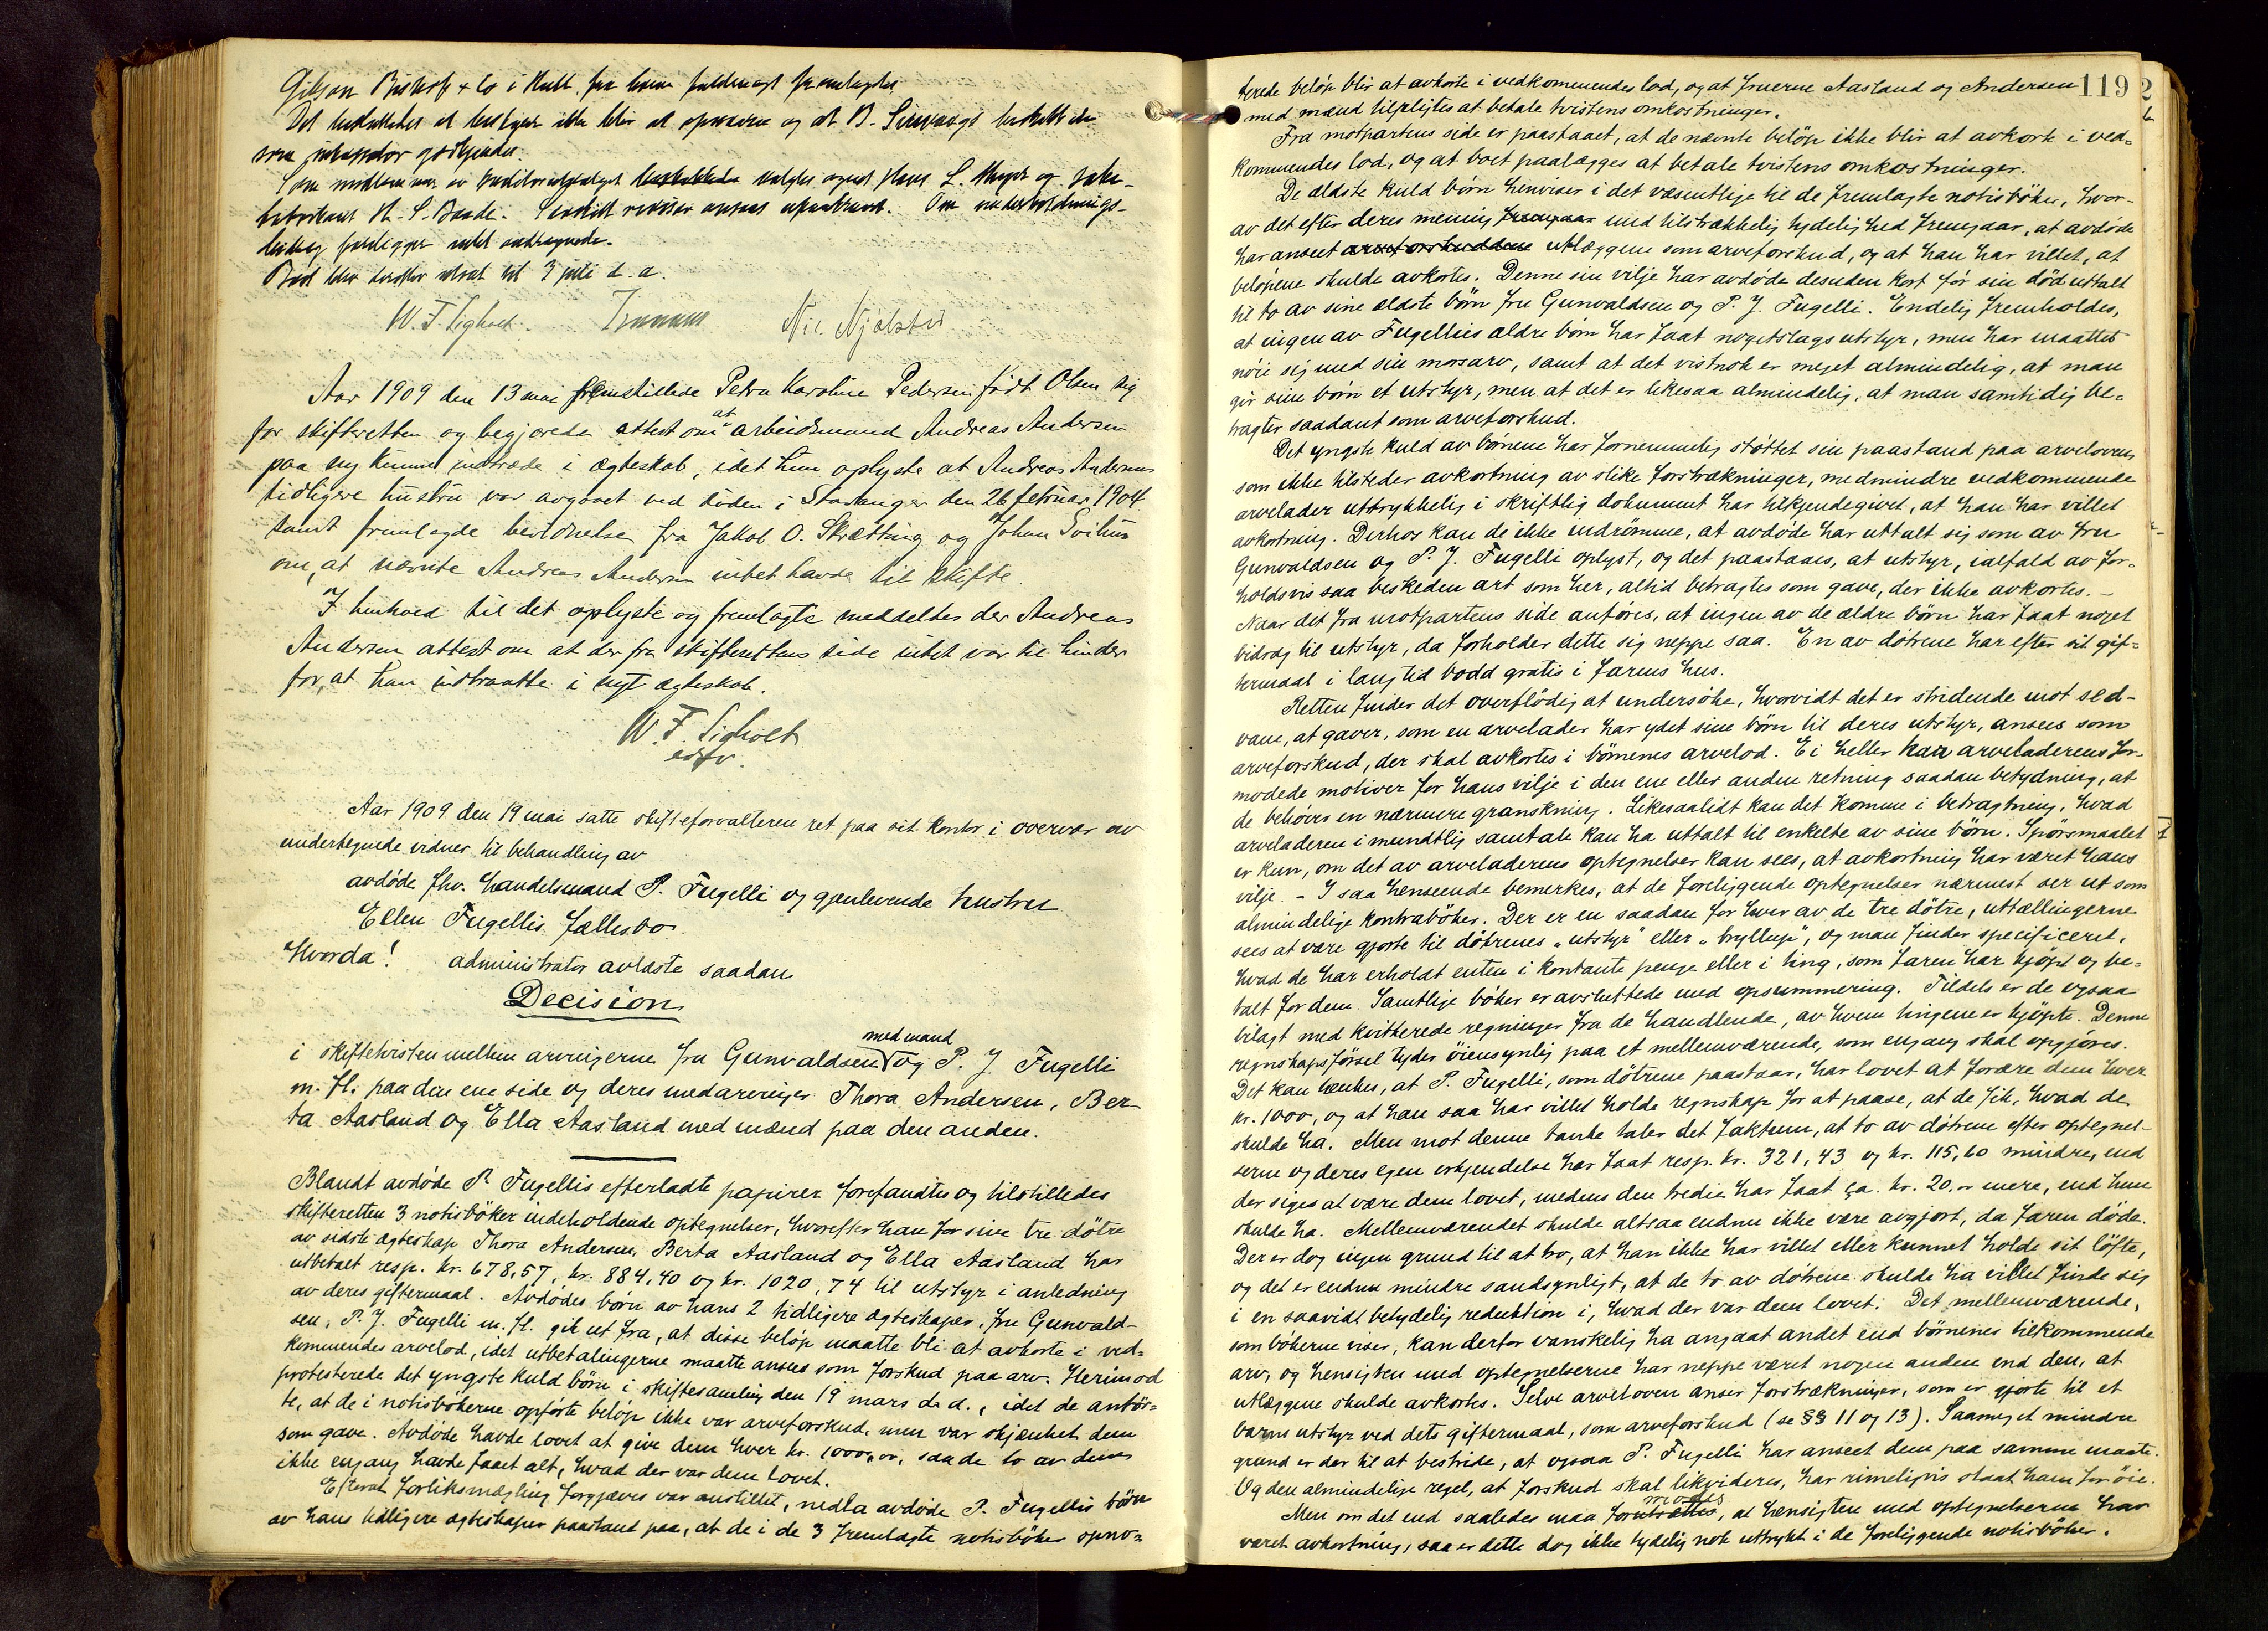 Gibson Biskop & Co i Hull, fra hvem fuldmagt fremlagdes.
Det besluttedes at bestyrer ikke blir at opnævne og at B. Sirevaags
som inkassator godkjendes.
Som medlemmer av kreditorutvalget valgtes agent Hans L. Meyer og
H. S. Baade. Om underholdnings-
bidrag foreligger intet andragende.
Bost blev derefter utsat til 3 juli d. a.
W. F. Sigholt. Nic. Njølstad
Aar 1909 den 13 mai fremstillede Petra Karoline Pedersen født Olsen sig
for skifteretten og begjærede attest om at arbeidsmand Andreas Andersen
paa ny kunne indtræde i ægteskab, idet hun oplyste at Andreas Andersens
tidligere hustru var avgaaet ved døden i Stavanger den 26 februar 1904.
samt fremlagde bevidnelse fra Jakob O. Skrætting og Johan Svihus
om, at nævnte Andreas Andersen intet havde til skifte.
I henhold til det oplyste og fremlagte meddeltes der Andreas
Andersen attest om at der fra skifterettens side intet var til hinder
for, at han indtraatte i nyt ægteskab.
W. F. Sigholt
edsfv.
Aar 1909 den 19 mai satte skifteforvalteren ret paa sit kontor i overvær av
undertegnede vidner til behandling av
avdøde fhv. handelsmand P. Fugelli og gjenlevende hustru
Ellen Fugellis fællesbo.
Hvorda! administrator avlæste saadan
Decision
i skiftetvisten mellem arvingerne fru Gunvaldsen med mand og P. J. Fugelli
m. fl. paa den ene side og deres medarvinger Thora Andersen, Ber-
ta Aasland og Ella Aasland med mænd paa den anden.
Blandt avdøde P. Fugellis efterladte papirer forefandtes og tilstilledes
skifteretten 3 notisbøker indeholdende optegnelser, hvorefter han for sine tre døtre
av sidste ægteskap Thora Andersen, Berta Aasland og Ella Aasland har
utbetalt resp. kr. 678,57, kr. 884,40 og kr. 1020,74 til utstyr i anledning
av deres giftermaal. Avdødes børn av hans 2 tidligere ægteskaper, fru Gunvald-
sen, P. J. Fugelli m. fl. gik ut fra, at disse beløp maatte bli at avkorte i ved-
kommendes arvelod, idet utbetalingerne maatte ansees som forskud paa arv. Herimod
protesterede det yngste kuld børn i skiftesamling den 19 mars d. a., idet de anfør-
te, at de i notisbøkerne opførte beløp ikke var arveforskud, men var skjænket dem
som gave. Avdøde havde lovet at give dem hver kr. 1000,00, saa de to av dem
ikke engang havde faaet alt, hvad der var dem lovet.
Efterat forliksmægling forgjæves var anstillet, nedla avdøde P. Fugellis børn
av hans tidligere ægteskaper paastand paa, at de i de 3 fremlagte notisbøker opno-
119
terede beløp blir at avkorte i vedkommendes lod, og at fruerne Aasland og Andersen
med mænd tilpligtes at betale tvistens omkostninger.
Fra motpartens side er paastaaet, at de nævnte beløp ikke blir at avkorte i ved-
kommendes lod, og at boet paalægges at betale tvistens omkostninger.
De ældste kuld børn henviser i det væsentlige til de fremlagte notisbøker, hvor-
av det efter deres mening fremgaar med tilstrækkelig tydelighed fremgaar, at avdøde
har anseet arveforskuddene utlæggene som arveforskud, og at han har villet, at
beløpene skulde avkortes. Denne sin vilje har avdøde desuden kort før sin død uttalt
til to av sine ældste børn fru Gunvaldsen og P. J. Fugelli. Endelig fremholdes,
at ingen av Fugellies ældre børn har faat nogetslags utstyr, men har maattet
nøie sig med sin morsarv, samt at det vistnok er meget almindelig, at man
gir sine børn et utstyr, men at det er likesaa almindelig, at man samtidig be-
tragter saadant som arveforskud.
Det yngste kuld av børnene har fornemmelig støttet sin paastand paa arveloven,
som ikke tilsteder avkortning av slike forstrækninger, medmindre vedkommende
arvelader uttrykkelig i skriftlig dokument har tilkjendegivet, at han har villet
avkortning. Derhos kan de ikke indrømme, at avdøde har uttalt sig som av fru
Gunvaldsen og P. J. Fugelli oplyst, og det paastaaes, at utstyr, ialfald av for-
holdsvis saa beskeden art som her, altid betragtes som gave, der ikke avkortes. –
Naar det fra motpartens side anføres, at ingen av de ældre børn har faat noget
bidrag til utstyr, da forholder dette sig neppe saa. En av døtrene har efter sit gif-
termaal i lang tid bodd gratis i farens hus.
Retten finder det overflødig at undersøke, hvorvidt det er stridende mot sed-
vane, at gaver, som en arvelader har ydet sine børn til deres utstyr, ansees som
arveforskud, der skal avkortes i børnenes arvelod. Ei heller kan arveladerens for-
modede motiver for hans vilje i den ene eller anden retning saadan betydning, at
de behøver en nærmere granskning. Likesaalidt kan det komme i betragtning, hvad
arveladeren i mundtlig samtale kan ha uttalt til enkelte av sine børn. Spørsmaalet
er kun, om det av arveladerens optegnelser kan sees, at avkortning har været hans
vilje. – I saa henseende bemerkes, at de foreliggende optegnelser nærmest ser ut som
almindelige kontrabøker. Der er en saadan for hver av de tre døtre, uttællingerne
sees at være gjorte til døtrenes „utstyr" eller „bryllup", og man finder specificeret,
hvad de har erholdt enten i kontante penge eller i ting, som faren har kjøpt og be-
talt for dem. Samtlige bøker er avsluttede med opsummering. Tildels er de ogsaa
bilagt med kvitterede regninger fra de handlende, av hvem tingene er kjøpte. Denne
regnskapsførsel tyder øiensynlig paa et mellemværende, som engang skal opgjøres.
Det kan tænkes, at P. Fugelli, som døtrene paastaar, har lovet at forære dem hver
kr. 1000, og at han saa har villet holde regnskap for at paase, at de fik, hvad de
skulde ha. Men mot denne tanke taler det faktum, at to av døtrene efter optegnel-
serne og deres egen erkjendelse har faat resp. kr. 321,43 og kr. 115,60 mindre, end
der siges at være dem lovet, medens den tredie har faat ca. kr. 20,- mere, end hun
skulde ha. Mellemværendet skulde altsaa endnu ikke være avgjort, da faren døde.
Der er dog ingen grund til at tro, at han ikke har villet eller kunnet holde sit løfte,
og det er endnu mindre sandsynligt, at de to av døtrene skulde ha villet finde sig
i en saavidt betydelig reduktion i, hvad der var dem lovet. Det mellemværende,
som bøkerne viser, kan derfor vanskelig ha angaat andet end børnenes tilkommende
arv, og hensigten med optegnelserne har neppe været nogen anden end den, at
utlæggene skulde avkortes. Selve arveloven anser forstrækninger, som er gjorte til et
barns utstyr ved dets giftermaal, som arveforskud (se §§ 11 og 13). Saameget mindre
grund er der til at bestride, at ogsaa P. Fugelli har anseet dem paa samme maate.
Og den almindelige regel, at forskud skal likvideres, har rimeligvis staat ham for øie.
Men om det end saaledes maa formodes, at hensigten med optegnelserne har
været avkortning, saa er dette dog ikke tydelig nok uttrykt i de foreliggende notisbøker.